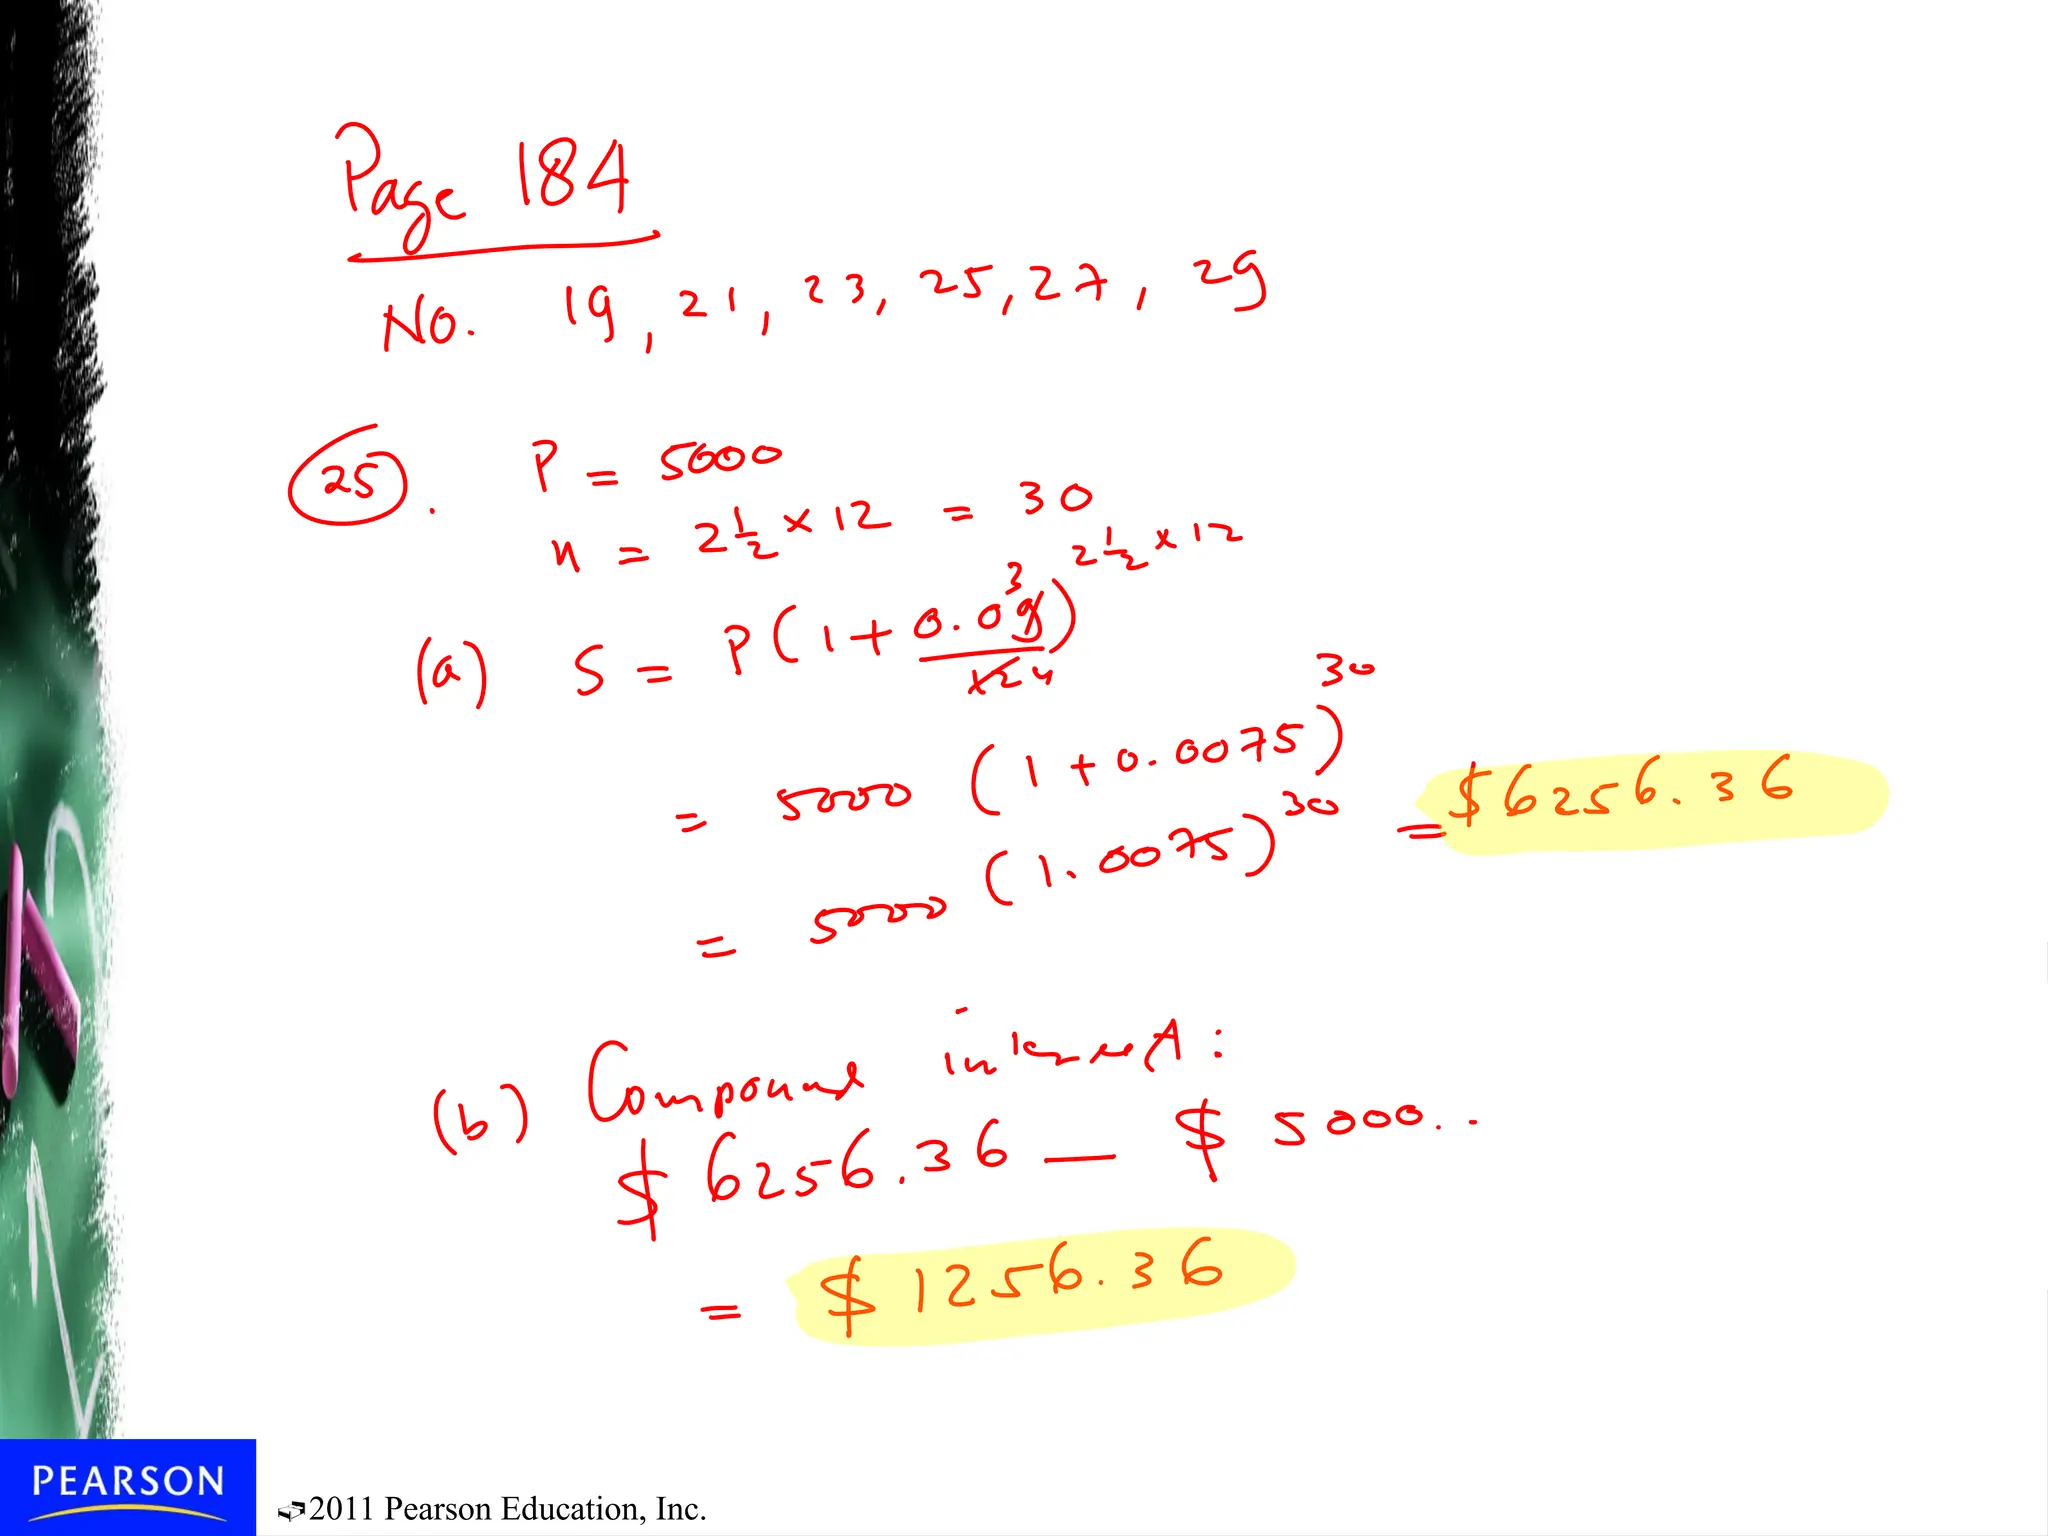 Page 184
No. 19, 21, 23, 25, 27, 29
25. P = 5000
n = 2 1/2 × 12 = 30
(a) S = P(1 + 0.09/12)^(2 1/2 × 12) 3 4
= 5000 (1 + 0.0075)^30
= 5000 (1.0075)^30 = $6256.36
(b) Compound interest:
$6256.36 — $5000..
= $1256.36
PEARSON
2011 Pearson Education, Inc.